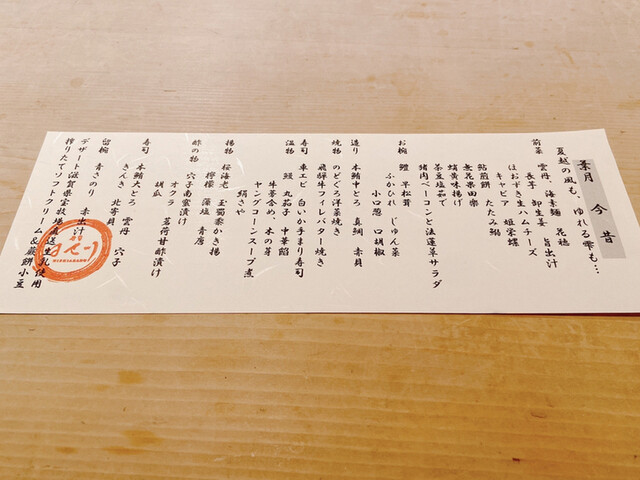 葉月 今昔
夏越の風も、ゆれる雫も…
前菜 雲丹、海素麺 花穂
長芋 卸生姜 旨出汁
ほおずき生ハムチーズ
キャビア 姫栄螺
鮎煎餅 たたみ鰯
無花果田楽
蛸黄味揚げ
茶豆塩茹で
猪肉ベーコンと法蓮草サラダ
お椀 鱧 早松茸
ふかひれ じゅん菜
小口葱 口胡椒
造り 本鮪中とろ 真鯛 赤貝
焼物 のどぐろ洋菜焼き
飛騨牛フィレバター焼き
寿司 車エビ 白いか手まり寿司
温物 鰻 丸茄子 中華餡
牛蒡含め、木の芽
ヤングコーンスープ煮
絹さや
揚物 桜海老 玉蜀黍かき揚
檸檬 藻塩 青唐
酢の物 穴子南蛮漬け
オクラ 茗荷甘酢漬け
胡瓜
寿司 本鮪大とろ 雲丹 穴子
きんき 北寄貝
留椀 青さのり 赤出汁
デザート滋賀県宝牧場直送生乳使用
搾りたてソフトクリーム&蕨餅小豆